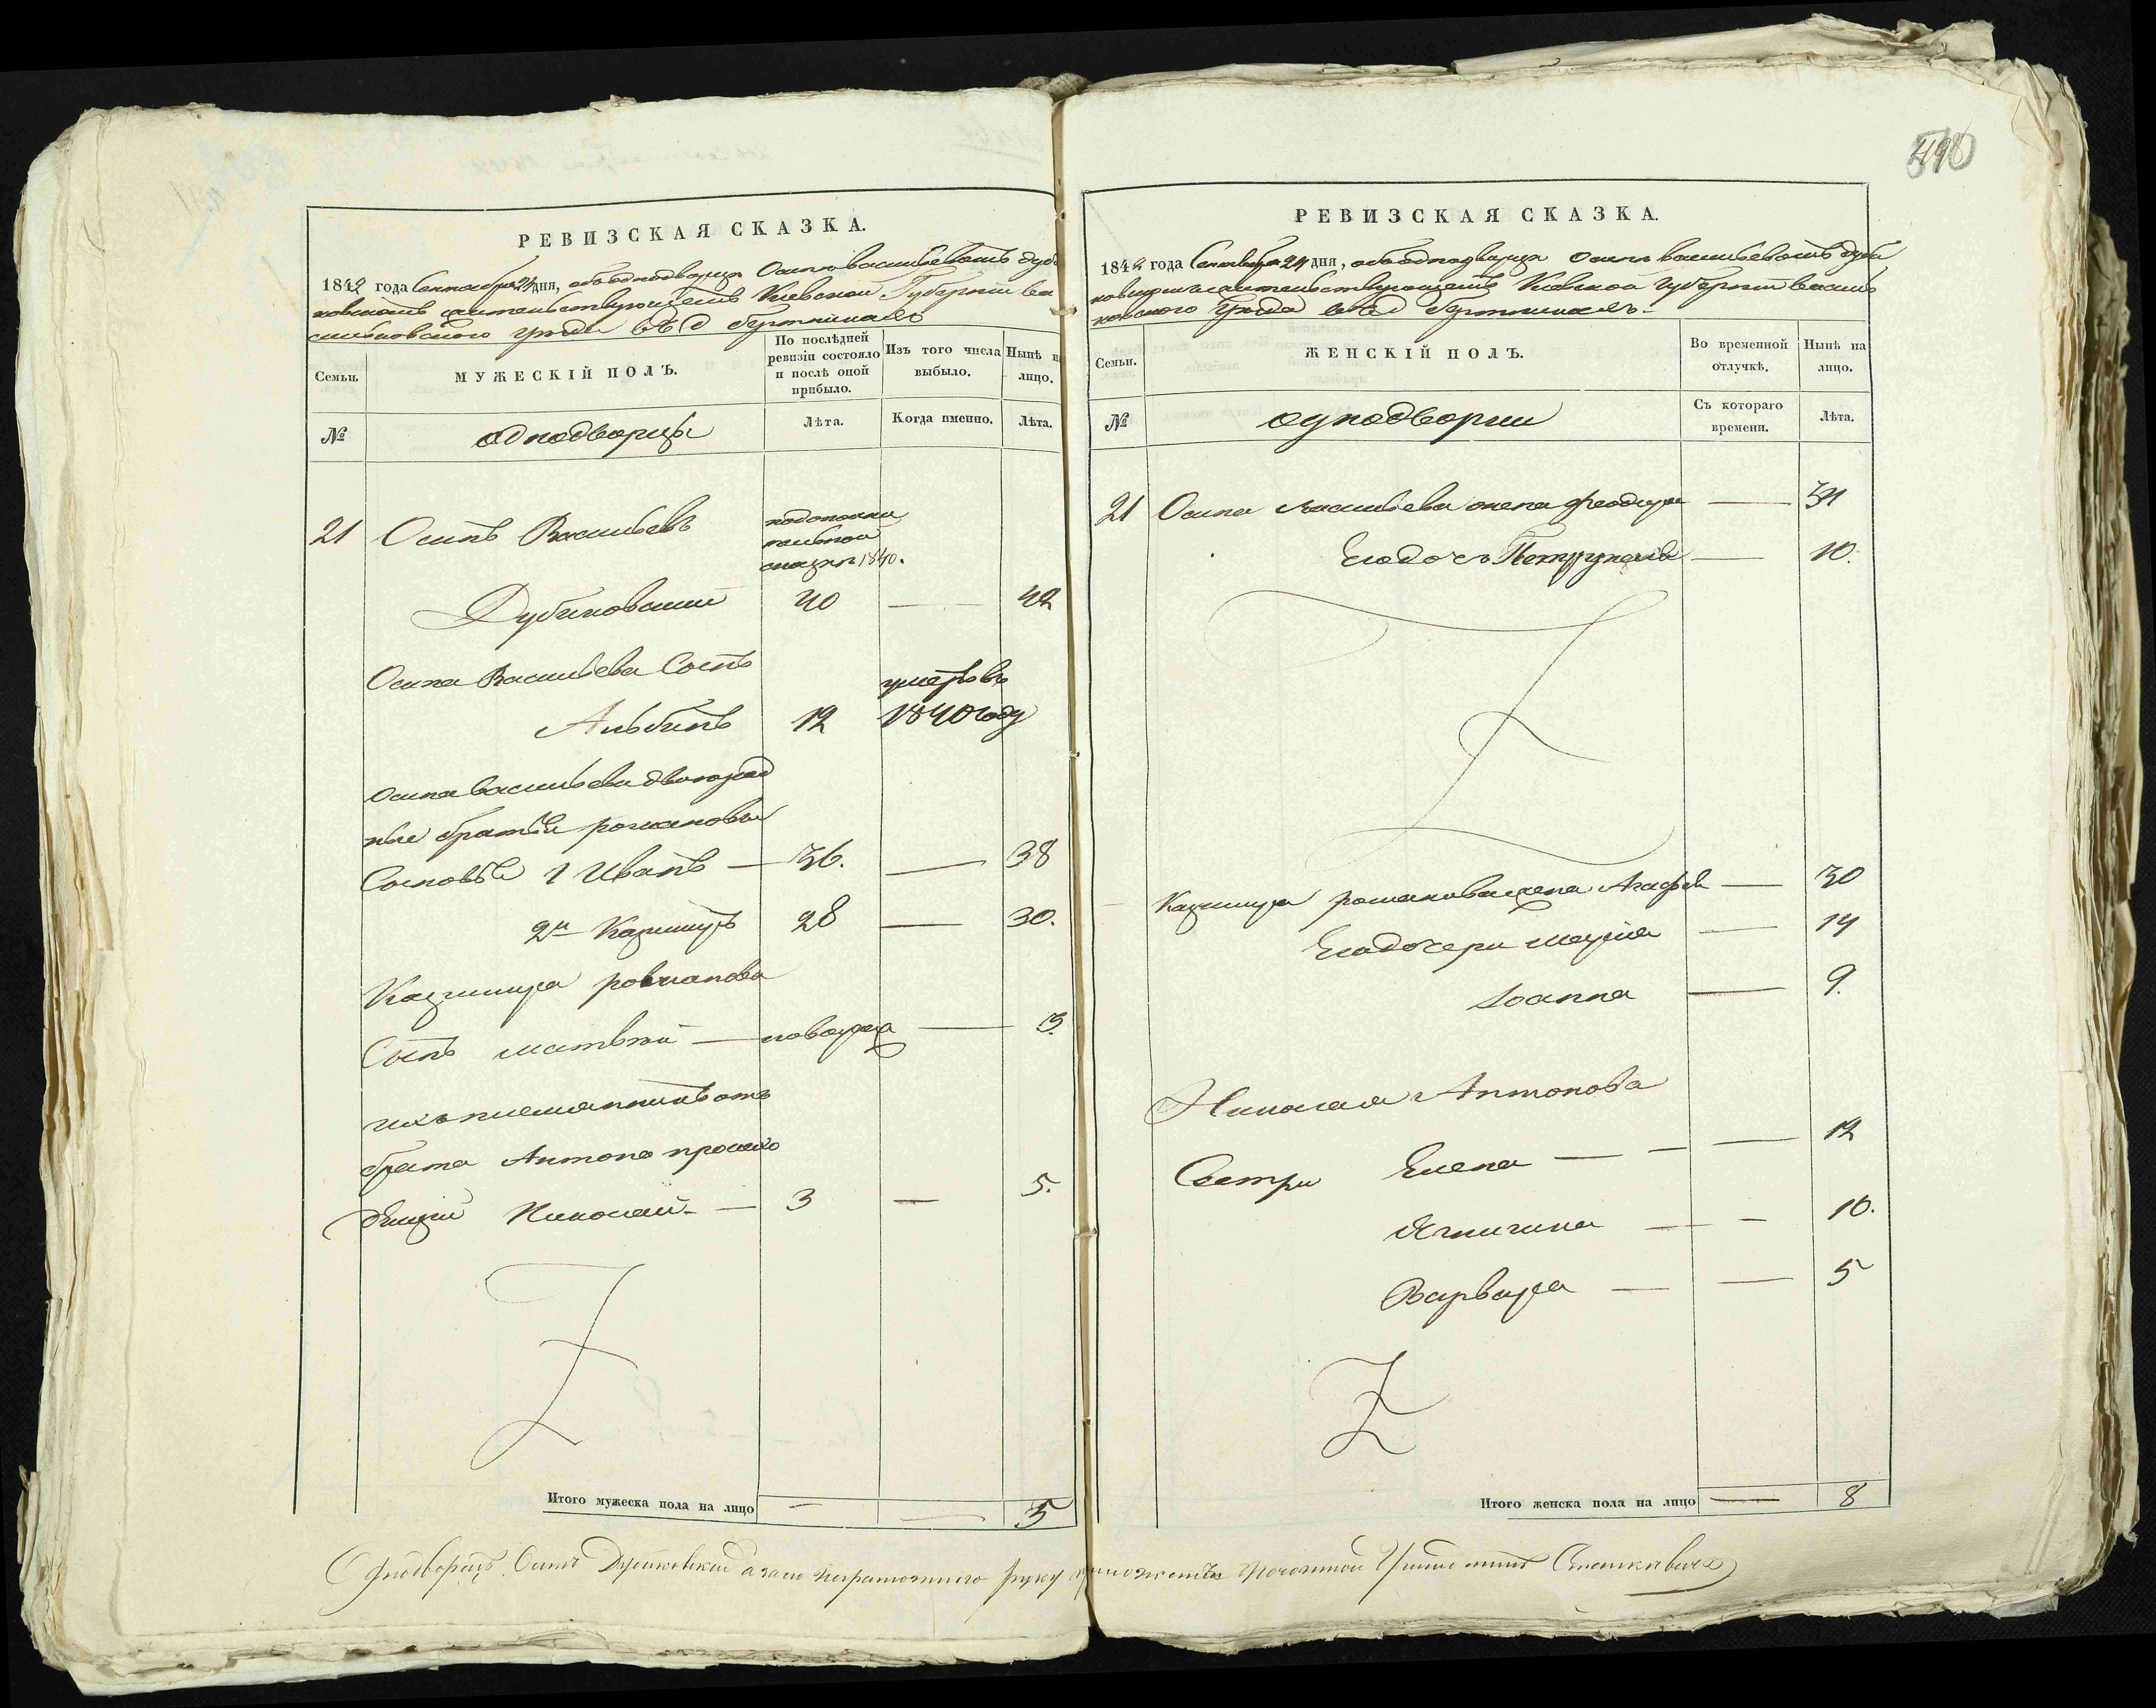 498
РЕВИЗСКАЯ СКАЗКА.
1842 года Сентября 24 дня, объ однодворце Осипе Васильевомъ Дуби
новскомъ жительствующемъ Киевской Губернии Ва
сильковскаго уезда въ д
Семьи.
МУЖЕСКІЙ ПОЛЪ.
По послѣдней ревизіи состояло и послѣ оной прибыло.
Изъ того числа выбыло.
Нынѣ на лицо.
№
однодворцы
Лѣта.
Когда именно.
Лѣта.
21 Осипъ Васильевъ
сказки 1840.
Дубиновский 40 — 42
Осипа Васильева Сынъ умеръ въ
Альбинъ 12 1840 году
Осипа Васильева двоюрод
ные братья романовы
Сыновья 1 Иванъ — 36. — 38
2й Казимиръ 28 — 30.
Казимира романова
Сынъ матвей — — 3.
ихъ племянникъ отъ
брата Антона
Николай — 3 — 5.
Итого мужеска пола на лицо — — 5
РЕВИЗСКАЯ СКАЗКА.
1842 года Сентября 24 дня, объ однодворце Осипе Васильевомъ Дуби
новскомъ жительствующемъ Киевской Губернии Василь
ковского Уезда въ д
Семьи.
ЖЕНСКІЙ ПОЛЪ.
Во временной отлучкѣ.
Нынѣ на лицо.
№
однодворки
Съ котораго времени.
Лѣта.
21 Осипа Васильева жена — 34
Его дочь — 10.
Казимира романова жена Агафия — 30
Его дочери Мария — 14
Иоанна — 9.
Николая Антонова
Сестри Елена — — — 12
— — 10.
Варвара — — 5
Итого женска пола на лицо — 8
Однодворецъ Осипъ Дубиновский а за него неграмотного руку приложилъ Станкевичъ